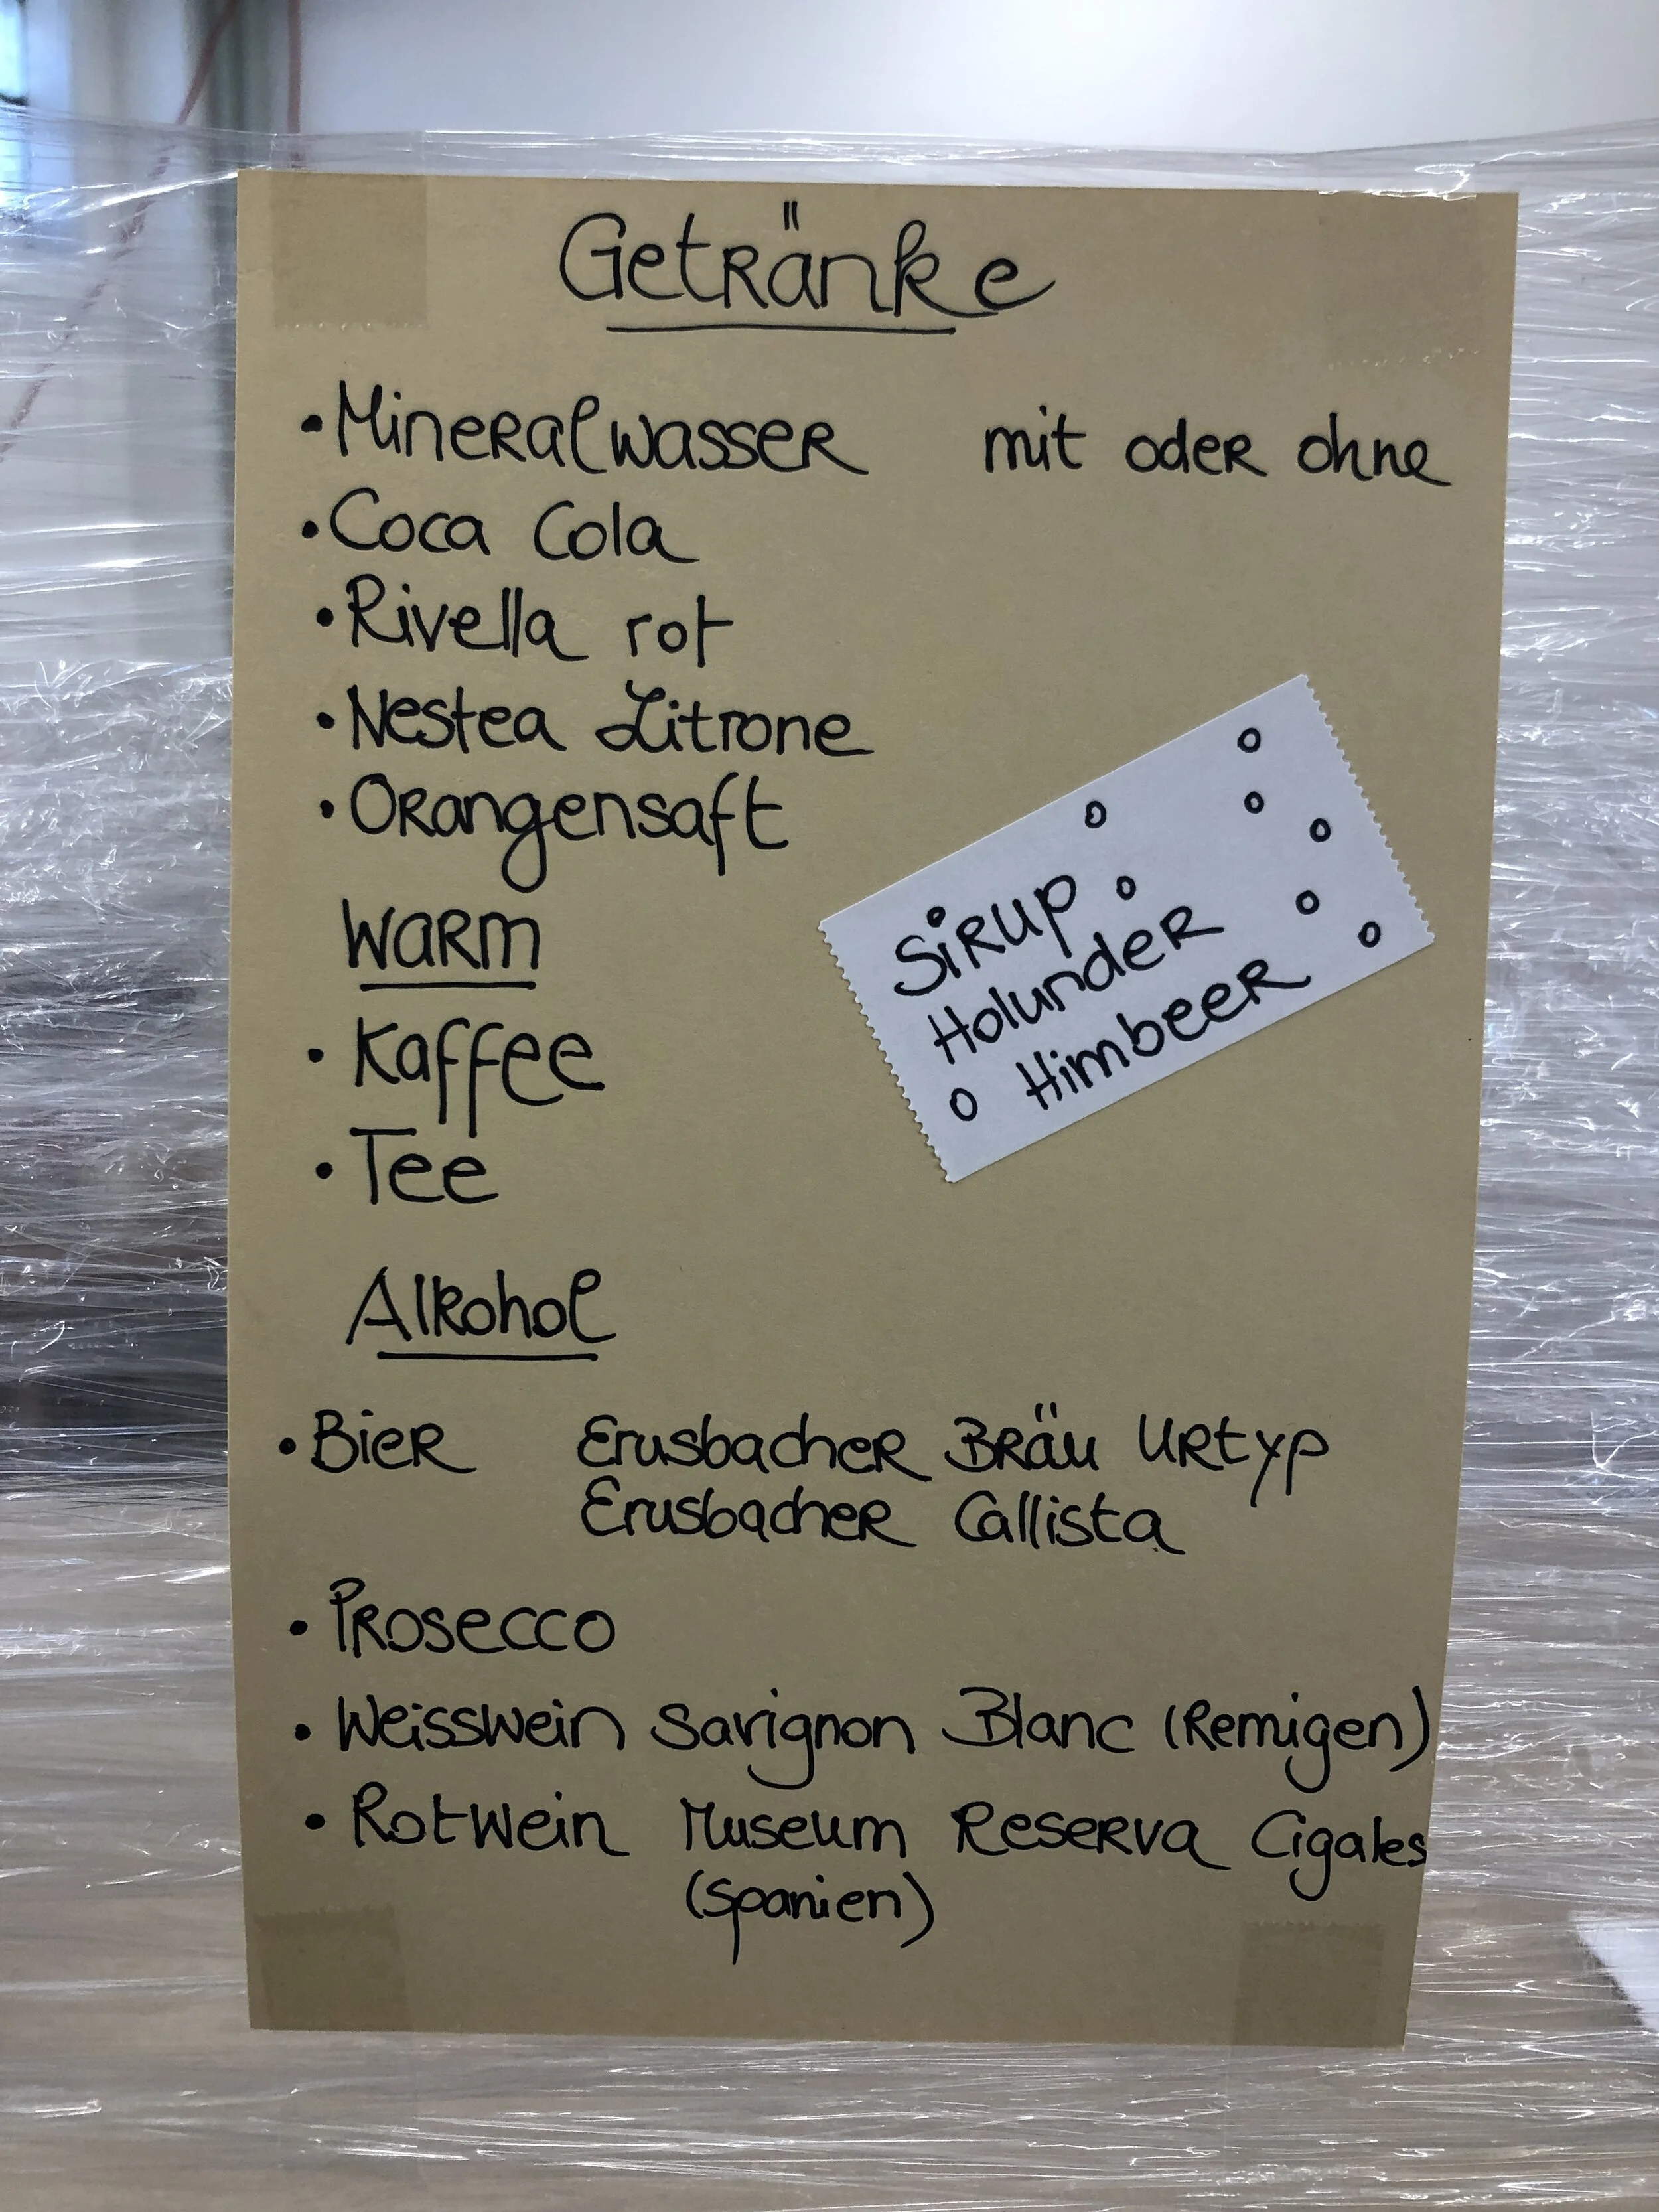 Getränke
• Mineralwasser mit oder ohne
• Coca Cola
• Rivella rot
• Nestea Zitrone
• Orangensaft
Sirup
Holunder
Himbeer
Warm
• Kaffee
• Tee
Alkohol
• Bier Erusbacher Bräu Urtyp
Erusbacher Callista
• Prosecco
• Weisswein Savignon Blanc (Remigen)
• Rotwein Museum Reserva Cigales
(Spanien)